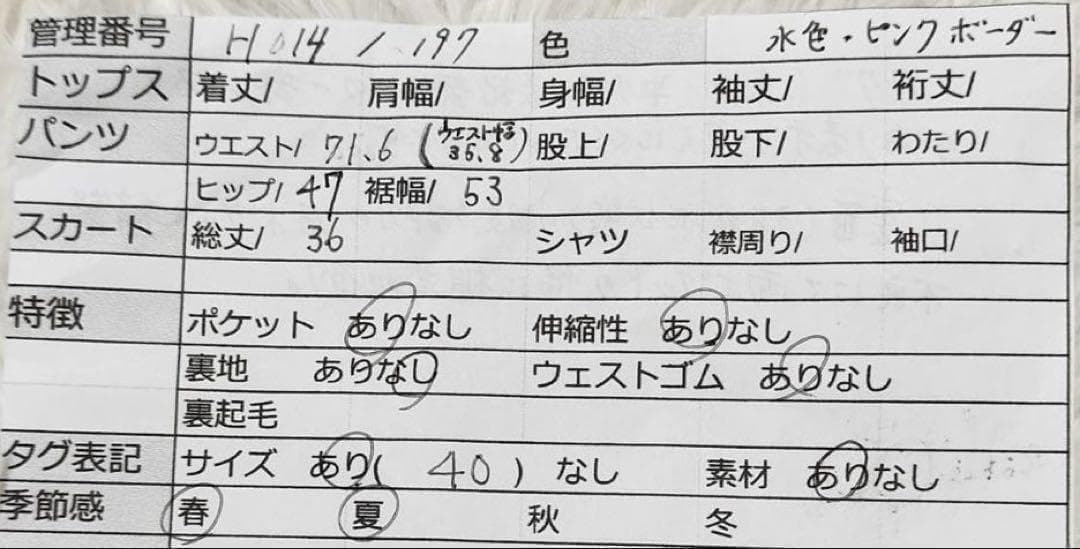 管理番号 H014 / 197 色 水色・ピンクボーダー
トップス 着丈/ 肩幅/ 身幅/ 袖丈/ 裄丈/
パンツ ウエスト/ 71.6 (ウエスト幅 36.8) 股上/ 股下/ わたり/
ヒップ/ 47 裾幅/ 53
スカート 総丈/ 36 シャツ 襟周り/ 袖口/
特徴 ポケット ありなし 伸縮性 ありなし
裏地 ありなし ウェストゴム ありなし
裏起毛
タグ表記 サイズ あり( 40 ) なし 素材 ありなし
季節感 春 夏 秋 冬